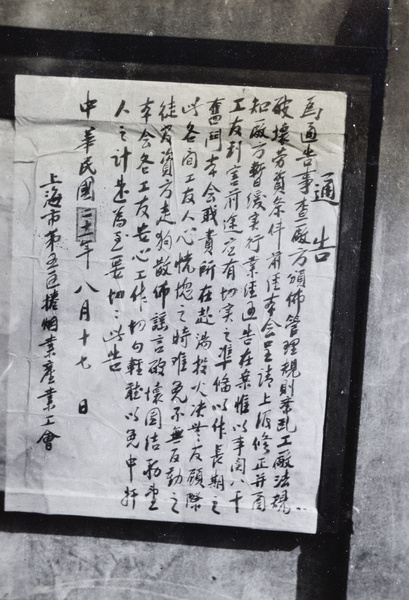 通告
為通告事查廠方頒佈管理規則紊乱工廠法規
破壞勞資條件前經本会呈請上修正并函
知廠方暫緩实行業經通告在案惟以事関八十
工友利害前途应有切实之準備以作長期之
奮鬥本会戢責所在赴湯投火决無反顧際
此各間工友人心恍惚之時难免不無反動之
徒及資方走狗散佈謠言破壞團結务望
本会各工友安心工作切勿輕聽以免中奸
人之计是為至要切切此告
中華民國二十二年八月十七日
上海市第五區捲烟業產業工會